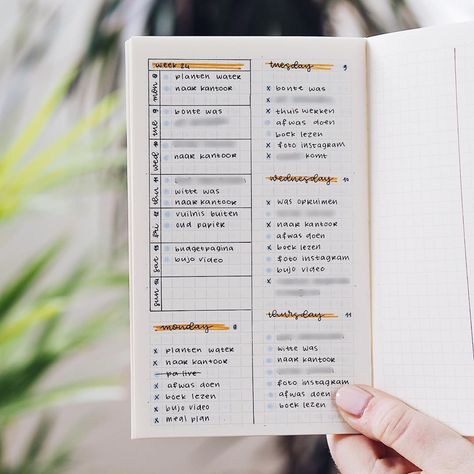 week 24
mon 8
planten water
naar kantoor
tue 9
bonte was
wed 10
naar kantoor
thu 11
witte was
naar kantoor
fri 12
vuilnis buiten
oud papier
sat 13
budgetpagina
bujo video
sun 14
monday 8
x planten water
x naar kantoor
pa live
x afwas doen
x boek lezen
x bujo video
x meal plan
tuesday 9
x bonte was
x
x thuis werken
afwas doen
boek lezen
x foto instagram
x komt
wednesday 10
x was opruimen
x naar kantoor
afwas doen
x boek lezen
foto instagram
bujo video
x
thursday 11
witte was
naar kantoor
foto instagram
afwas doen
boek lezen